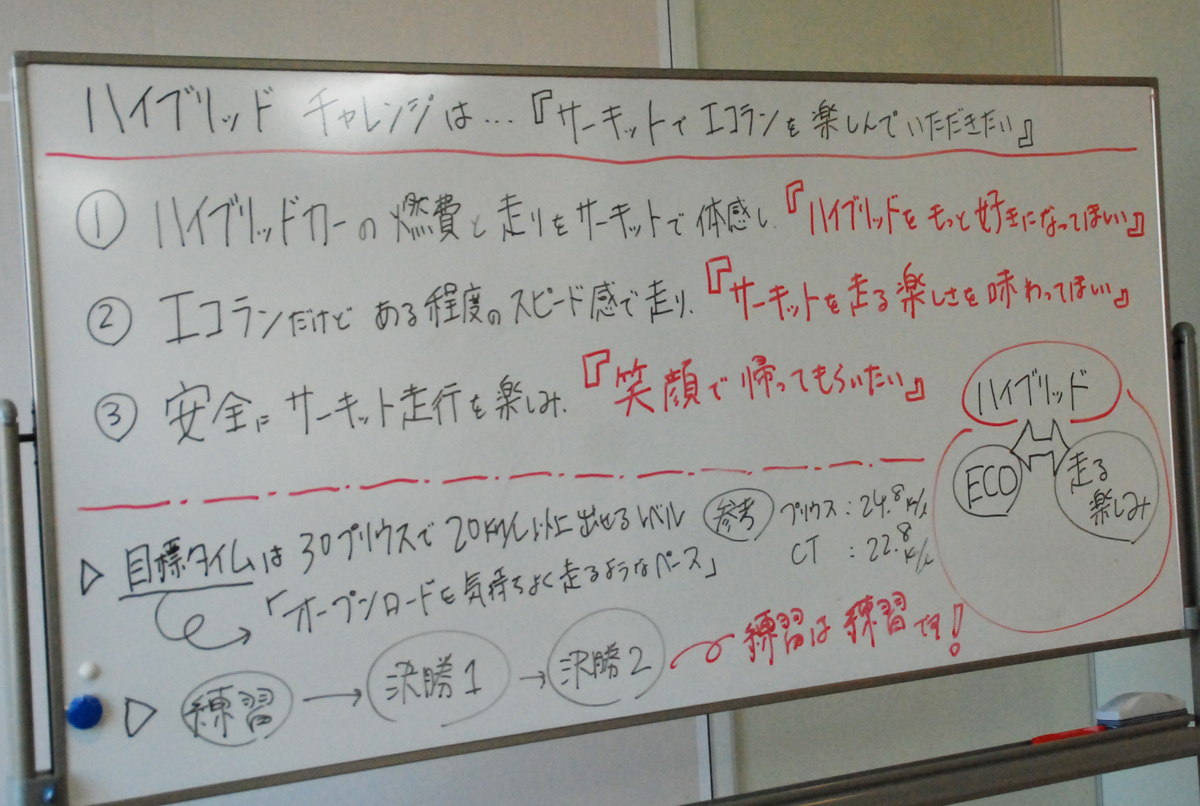 ハイブリッド チャレンジは…『サーキットでエコランを楽しんでいただきたい』
① ハイブリッドカーの燃費と走りをサーキットで体感し、『ハイブリッドをもっと好きになってほしい』
② エコランだけど ある程度のスピード感で走り、『サーキットを走る楽しさを味わってほしい』
③ 安全に サーキット走行を楽しみ、『笑顔で帰ってもらいたい』
ハイブリッド
ECO
走る
楽しみ
▷ 目標タイムは30プリウスで20km/L以上出せるレベル
参考 プリウス:24.8 K/L
CT :22.8 K/L
「オープンロードを気持ちよく走るようなペース」
▷ 練習 → 決勝1 → 決勝2 練習は練習です!